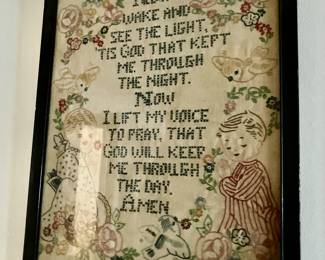 WAKE AND
SEE THE LIGHT,
'TIS GOD THAT KEPT
ME THROUGH
THE NIGHT.
NOW
I LIFT MY VOICE
TO PRAY, THAT
GOD WILL KEEP
ME THROUGH
THE DAY.
AMEN